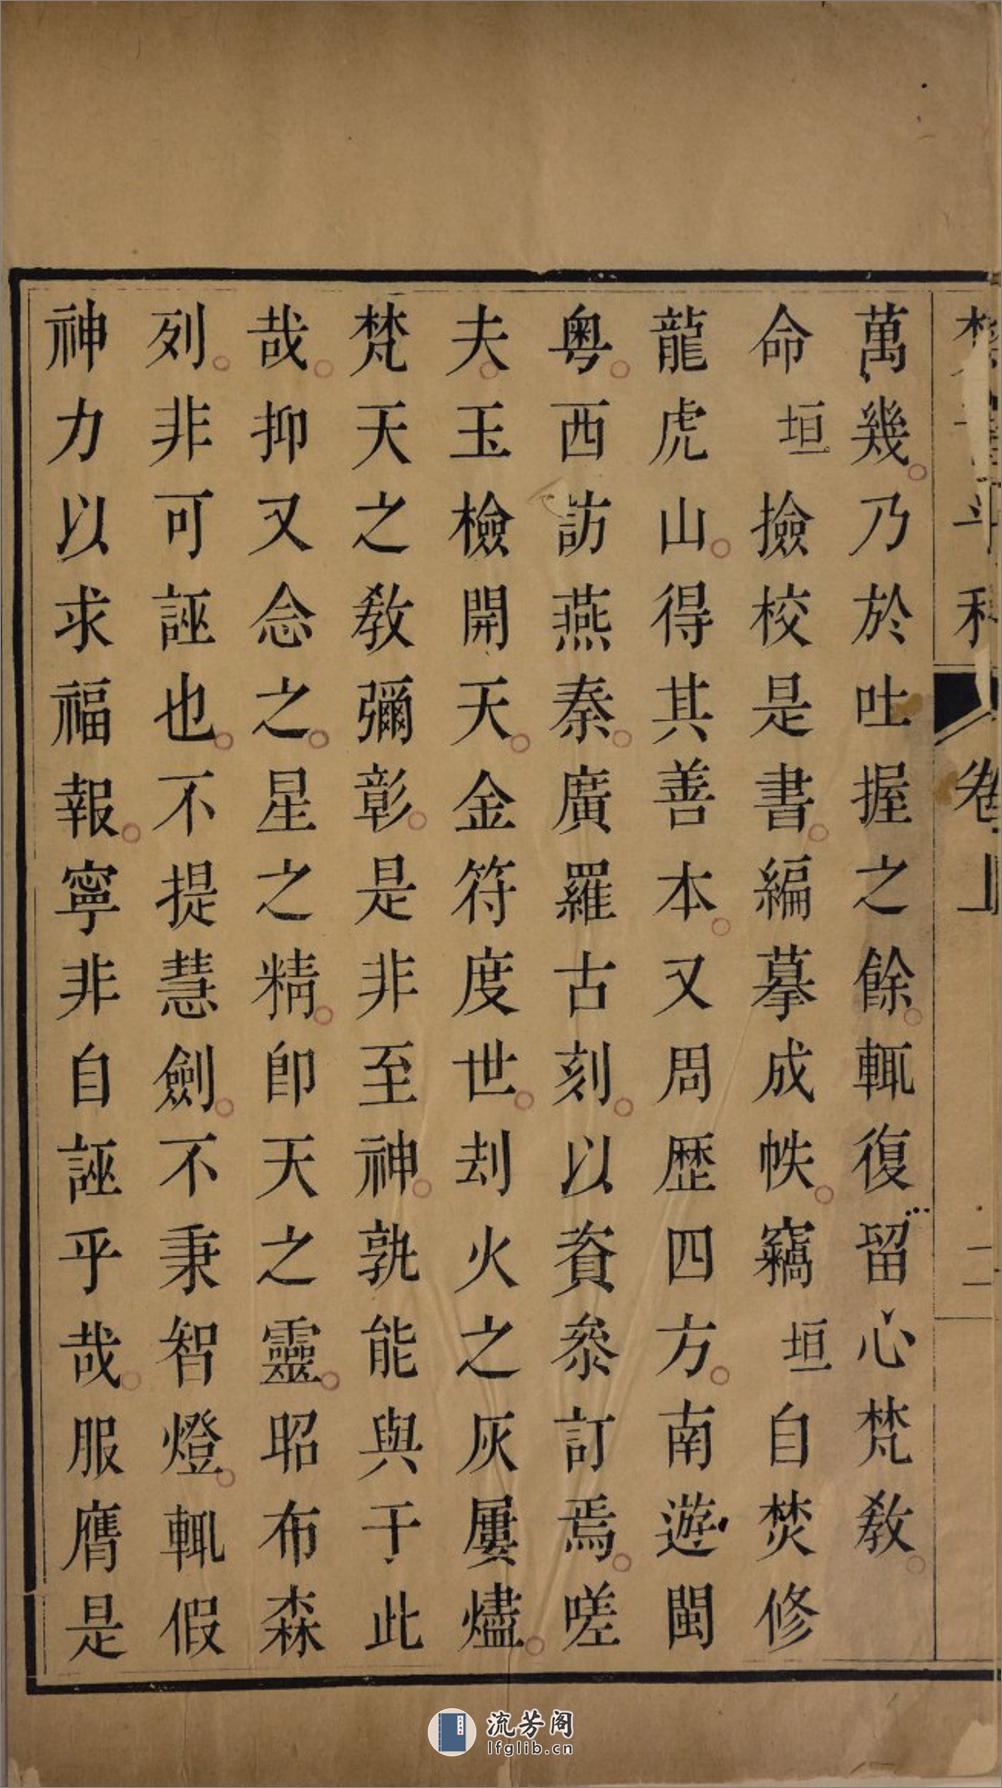 斗科 卷上 二
萬幾。乃於吐握之餘。輒復留心梵教。
命垣撿校是書。編摹成帙。竊垣自焚修
龍虎山。得其善本。又周歷四方。南遊閩
粵。西訪燕秦。廣羅古刻。以資叅訂焉。嗟
夫。玉檢開天。金符度世。刦火之灰屢燼。
梵天之教彌彰。是非至神。孰能與于此
哉。抑又念之。星之精。卽天之靈。昭布森
列。非可誣也。不提慧劍。不秉智燈。輒假
神力以求福報。寧非自誣乎哉。服膺是
流芳阁
lfglib.cn